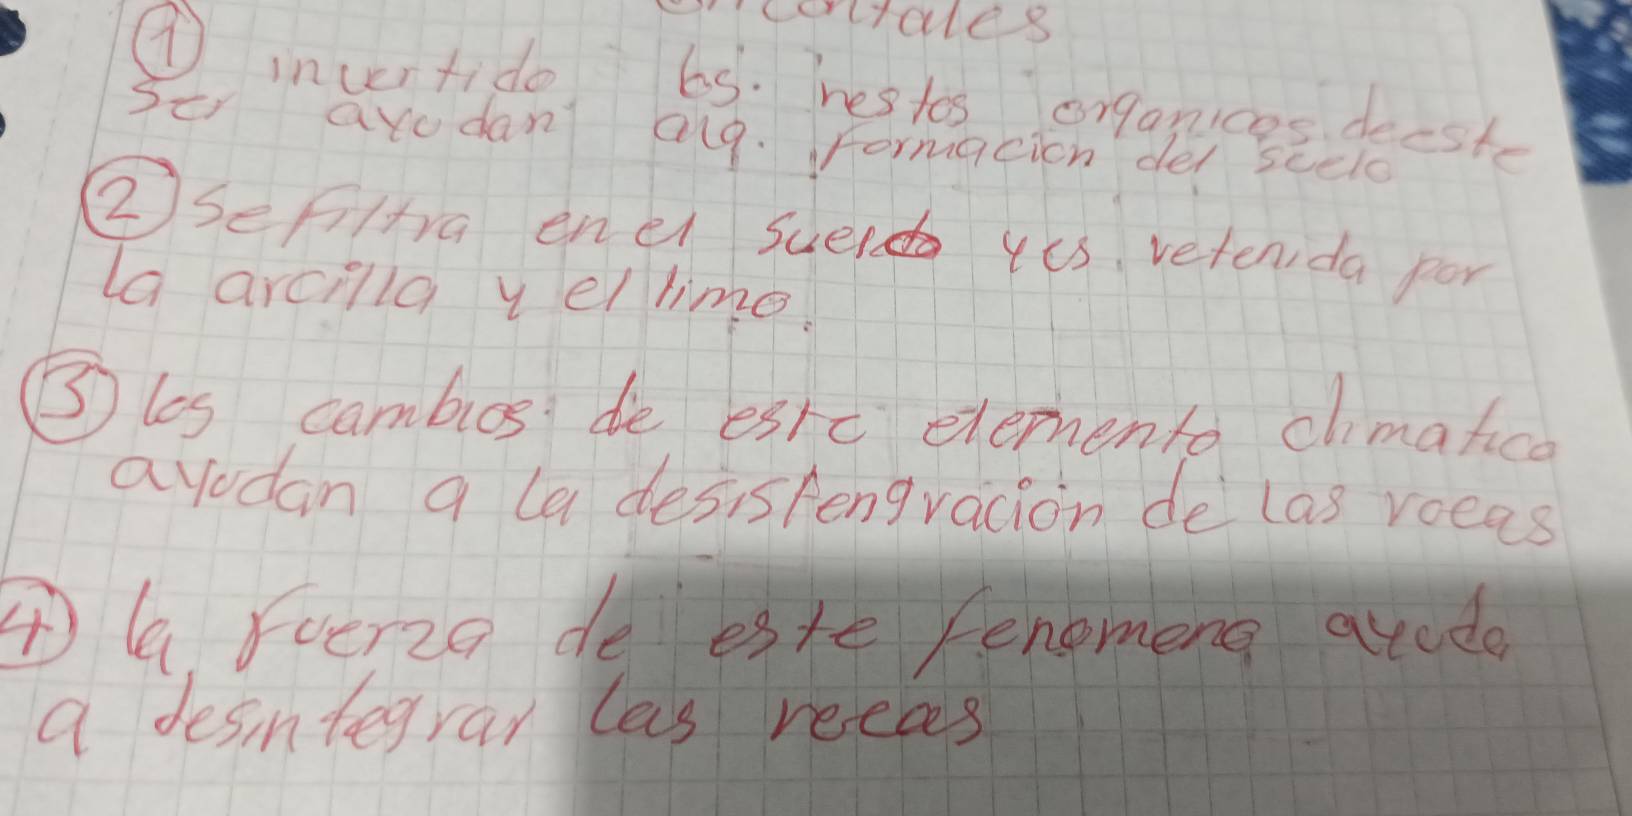 ① invertido los restos organicos de este
ser ayudan a la formacion del suelo
② se filtra en el suelo y es retenida por
la arcilla y el limo.
③ los cambios de este elemento climatico
ayudan a la desistengración de las rocas
④ la fuerza de este fenomeno ayuda
a desintegrar las rocas